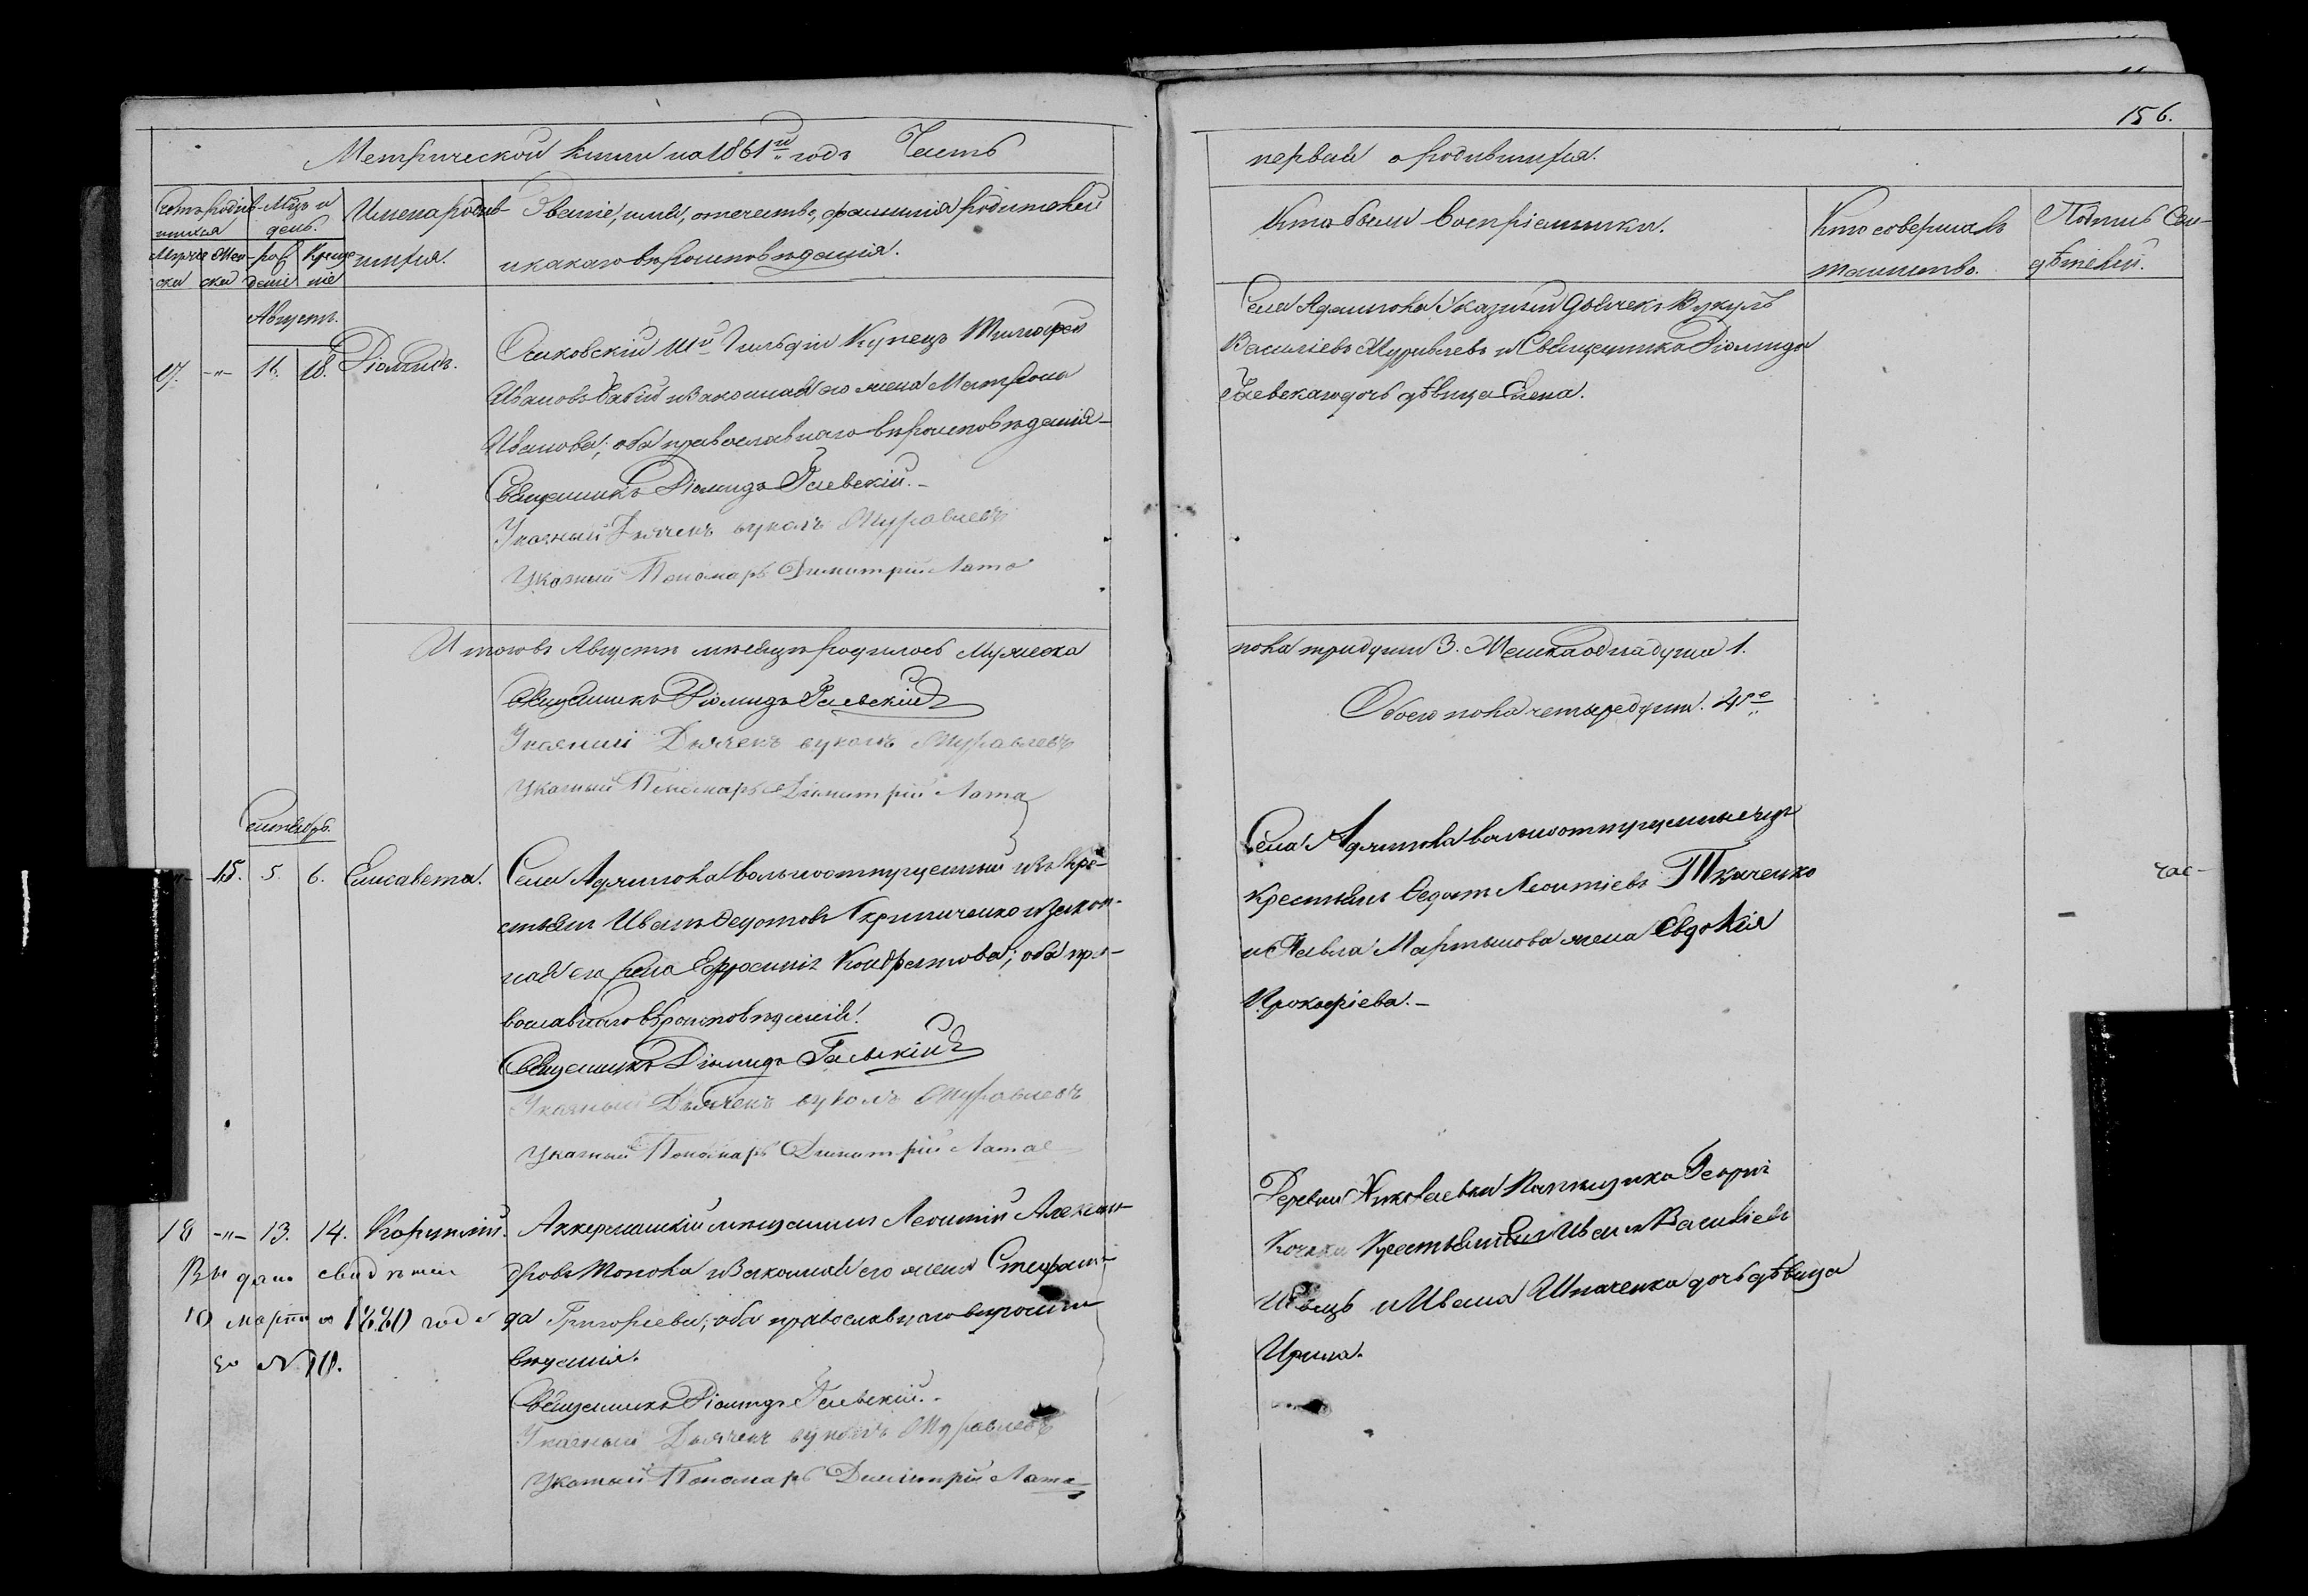 156.
Метрической книги на 1861й годъ Часть
первая о родившихся.
Счетъ родившихся
Мужеска Женска
Мѣцъ и день.
рожденіе Крещеніе
Имена родившихся.
Званіе, имя, отечество, фамилія родителей
и какаго вѣроисповѣданія.
Кто были воспріемники.
Кто совершалъ
таинство.
Подпись Свидѣтелей.
Августъ.
17. -"- 16. 18. Діомидъ.
Очаковскій IIIй Гильдіи Купецъ Тимофей
Ивановъ Бабій и Законная его жена Матрона
Иванова; оба православнаго вѣроисповѣданія
Священникъ Діомидъ Гаевскій.
Указный Дьячекъ вуколъ Муравлевъ
Указный Пономарь Димитрій Лата
Села Адамовка Указный Дьячекъ Вукулъ
Васильевъ Муравлевъ и Священника Діомида
Гаевскаго дочь дѣвица Елена.
Итого въ Августѣ мѣсяцѣ родилось Мужеска
пола три души 3. Женска одна душа 1.
Обоего пола четыре души. 4ре
Священникъ Діомидъ Гаевскій
Указный Дьячекъ вуколъ Муравлевъ
Указный Пономарь Димитрій Лата
Сентябрь.
-"- 15. 5. 6. Елисавета.
Села Адамовка вольноотпущенный изъ Кре-
стьянъ Иванъ Федотовъ Скрипиченко и Закон-
ная его жена Ефросинія Кондратова; оба пра-
вославнаго вѣроисповѣданія.
Священникъ Діомидъ Гаевскій
Указный Дьячекъ вуколъ Муравлевъ
Указный Пономарь Димитрій Лата
Села Адамовка вольноотпущенные изъ
крестьянъ Федотъ Леонтіевъ Ткаченко
и Павла Мартынова жена Евдокія
Прокофіева.
час-
18 -"- 13. 14. Корнилій.
Аккерманскій мѣщанинъ Леонтій Алексан-
дровъ Тополя и Законная его жена Стефани-
да Григорьева; оба православнаго вѣроиспо-
вѣданія.
Священникъ Діомидъ Гаевскій.
Указный Дьячекъ вуколъ Муравлевъ
Указный Пономарь Димитрій Лата
Выдано свидѣтел
10 марта 1880 года
за N. 10.
Деревни Николаевки Помѣщика Георгія
Крестьянинъ Иванъ Васильевъ
и Ивана Шпаченка дочь дѣвица
Ирина.